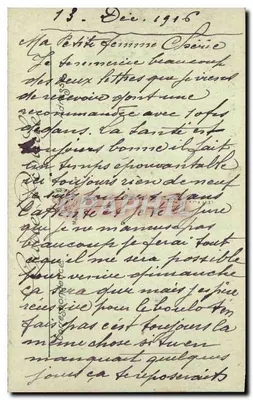 13. Déc. 1916
Ma Petite femme Chérie
Je te remercie beaucoup
des deux lettres que je viens
de recevoir dont une
recommandée avec 10frs
dedans. La santé est
toujours bonne il fait
un temps épouvantable
toujours rien de neuf
dans
l'attente et je te jure
que je ne m'amuse pas
beaucoup je ferai tout
ce qu'il me sera possible
pour venir dimanche
ça sera dur mais j'espère
réussir pour le boulot t'en
fais pas c'est toujours la
même chose si tu en
manquait quelques
jours ça te reposerait